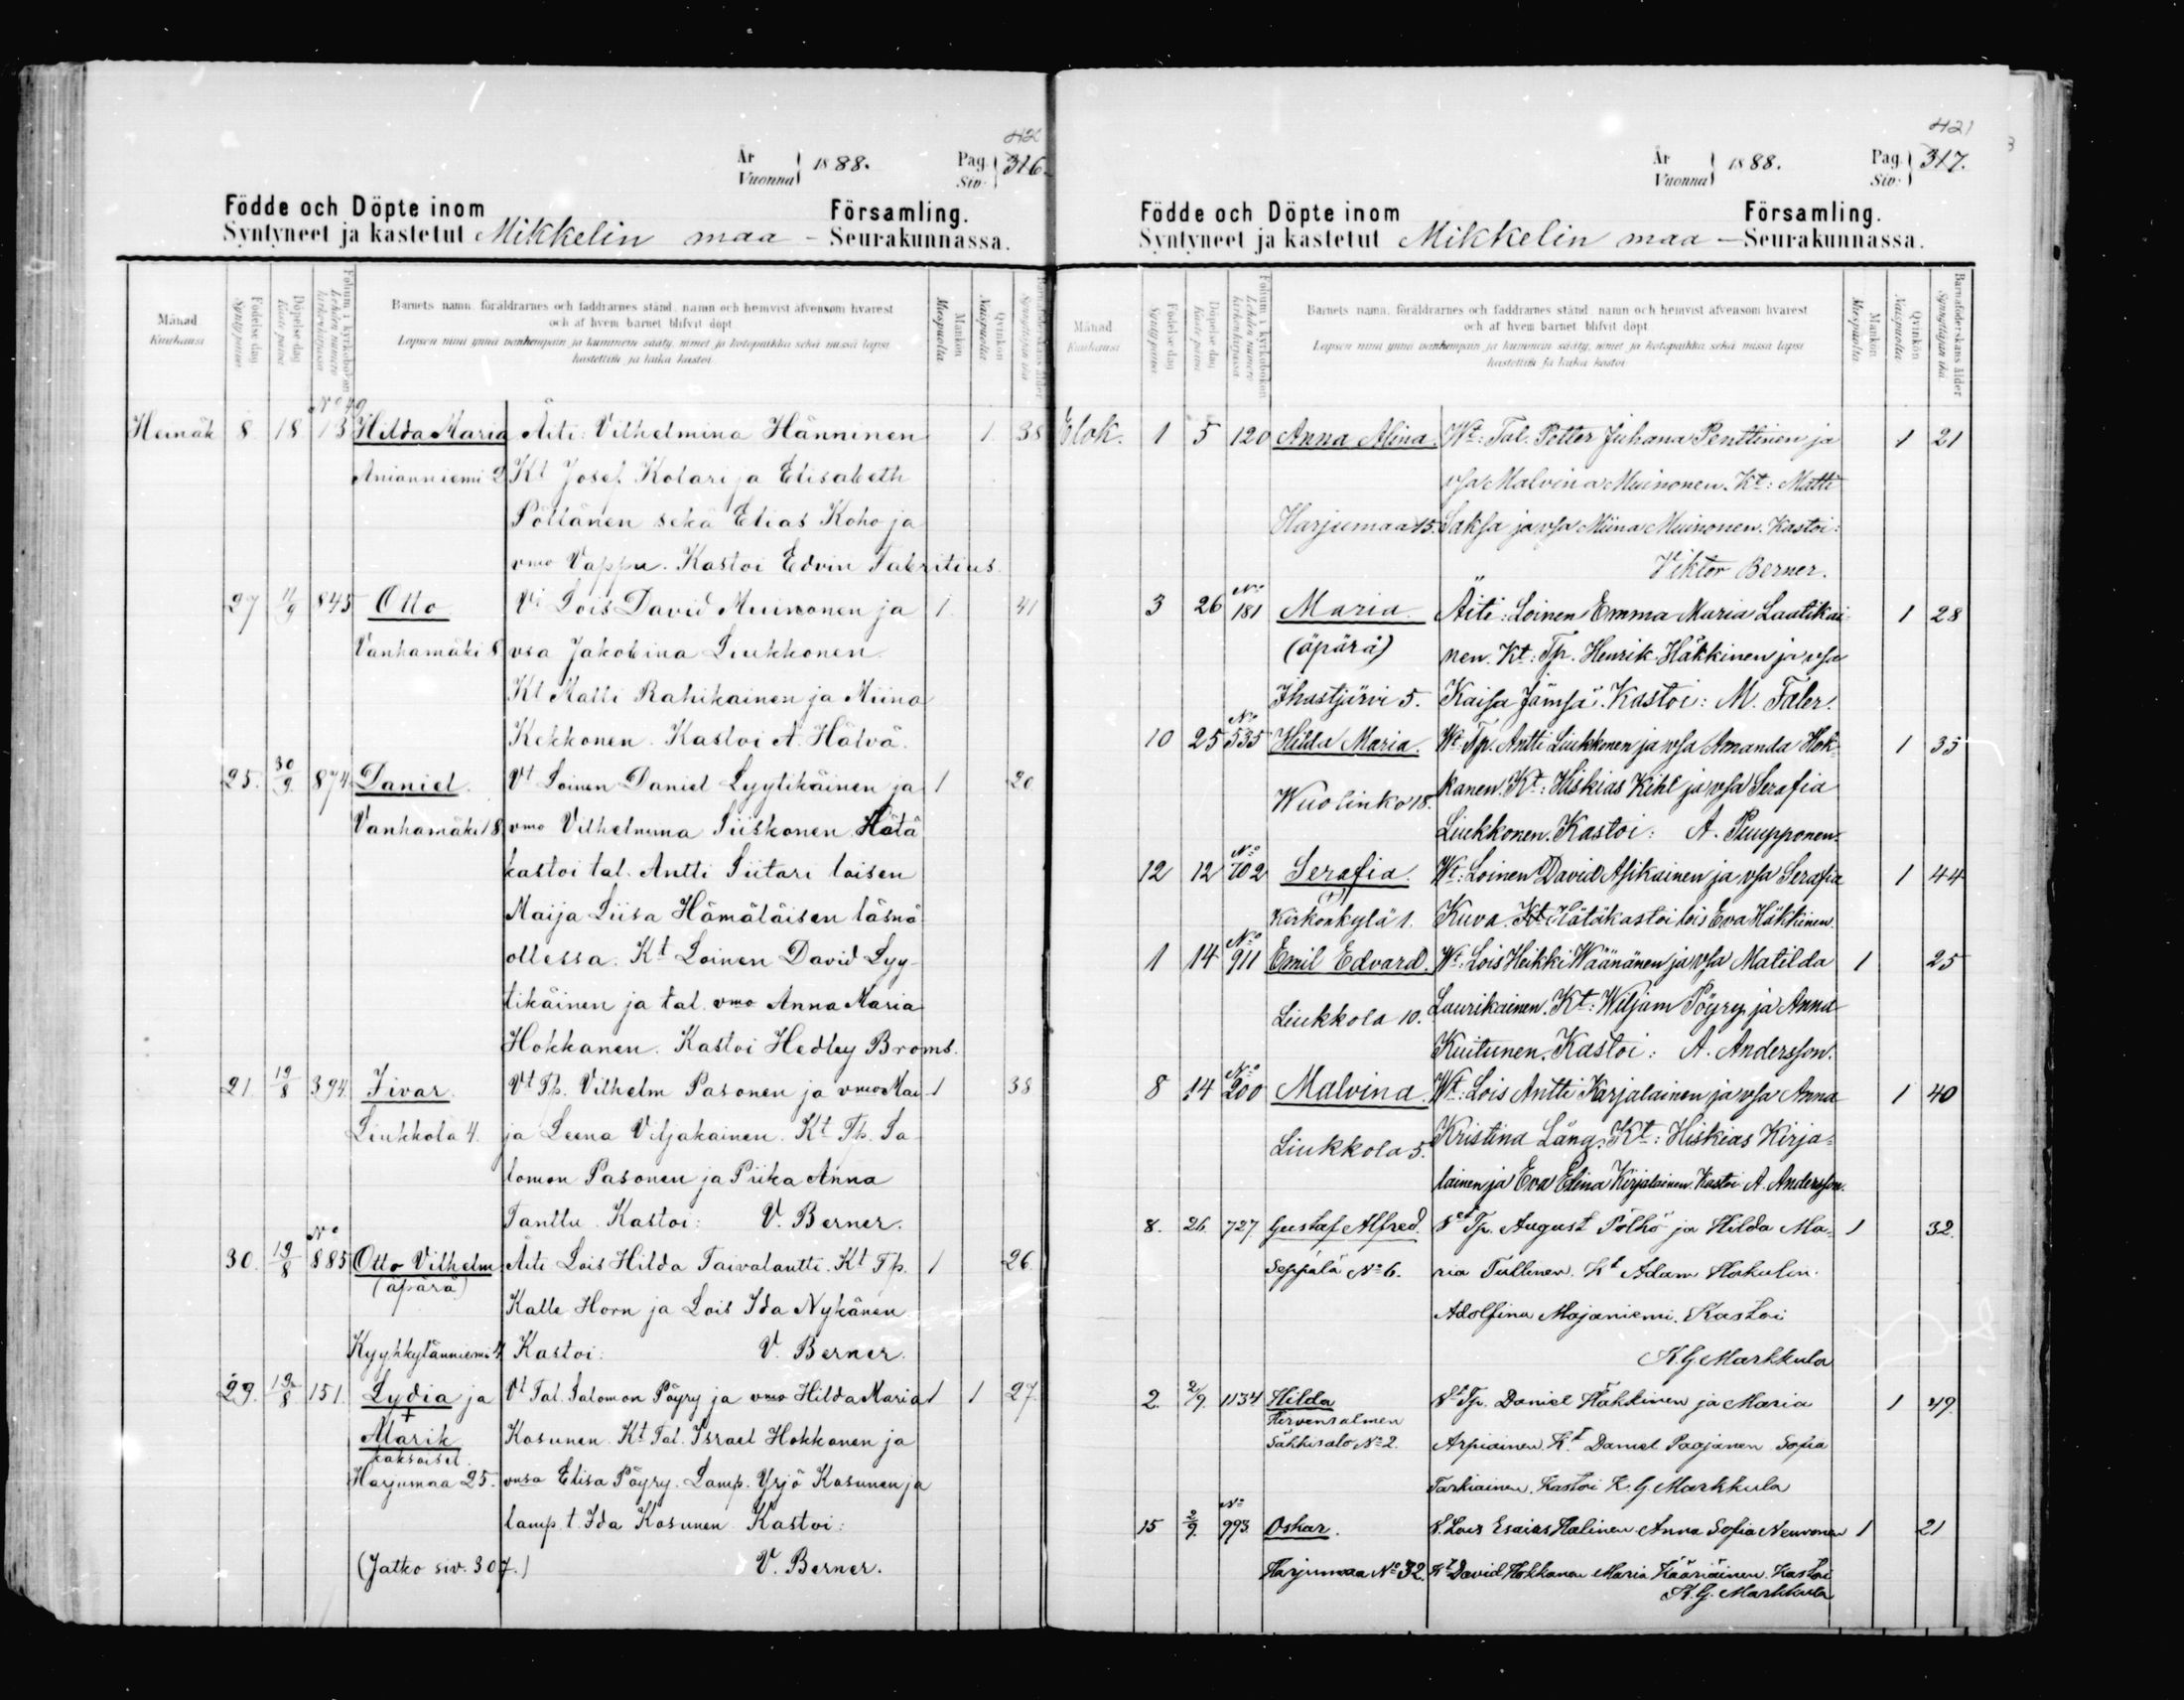 År
Vuonna
1888.
Pag.
Siv.
316.
Födde och Döpte inom
Församling.
Syntyneet ja kastetut Mikkelin maa - Seurakunnassa.
Månad
Kuukausi
Födelse dag
Syntypäivä
Döpelse dag
Kaste päivä
Barnets namn, föräldrarnes och faddrarnes stånd, namn och hemvist äfvensom hvarest
och af hvem barnet blifvit döpt
Lapsen nimi ynnä vanhempain ja kummein sääty, nimet ja kotopaikka sekä missä lapsi
kastettiin ja kuka kastoi.
Mankön
Miespuolia
Qvinkön
Naispuolia
Heinäk 8 18 13 Hilda Maria Äiti: Vilhelmina Hänninen 1 38
Anianniemi 2 Kt Josef Kolari ja Elisabeth
Pöllänen sekä Elias Koho ja
vmo Vappu. Kastoi Edvin Fabritius.
27 11/9 845 Otto Vt Lois David Muinonen ja 1 41
Vanhamäki 8 vsa Jakobina Liukkonen
Kt Matti Rahikainen ja Miina
Kekkonen. Kastoi A. Hätvä.
25. 30/9. 874 Daniel. Vt Loinen Daniel Lyytikäinen ja 1 20
Vanhamäki 18 vmo Vilhelmina Siiskonen Hätä
kastoi tal. Antti Siitari loisen
Maija Liisa Hämäläisen läsnä
ollessa. Kt Loinen David Lyy-
tikäinen ja tal. vmo Anna Maria
Hokkanen. Kastoi Hedley Broms.
21. 19/8 394. Iivar. Vt Tp. Vilhelm Pasonen ja vmo Mai- 1 38
Liukkola 4. ja Leena Viljakainen. Kt Tp. Sa-
lomon Pasonen ja Piika Anna
Tanttu. Kastoi: V. Berner.
No
30. 19/8 885 Otto Vilhelm Äiti Lois Hilda Taivalantti. Kt Tp. 1 26
(äpärä)
Kalle Horn ja Lois Ida Nykänen
Kyyhkylänniemi 4 Kastoi: V. Berner.
29. 19/8 151. Lydia ja Vt Tal. Salomon Pöyry ja vmo Hilda Maria 1 1 27.
Marik Kasunen. Kt Tal. Israel Hokkanen ja
kaksoiset
Harjumaa 25. vmsa Elisa Pöyry. Lamp. Yrjö Kasunen ja
lamp. t. Ida Kasunen Kastoi:
(Jatko siv. 307.) V. Berner.
421
År
Vuonna
1888.
Pag.
Siv:
317.
Födde och Döpte inom
Församling.
Syntyneet ja kastetut Mikkelin maa - Seurakunnassa.
Månad
Kuukausi
Födelse dag
Syntypäivä
Döpelse dag
Kaste päivä
Folium i kyrkoboken
Barnets namn, föräldrarnes och faddrarnes stånd, namn och hemvist äfvensom hvarest
och af hvem barnet blifvit döpt
Lapsen nimi ynnä vanhempain ja kummein sääty, nimet ja kotopaikka sekä missä lapsi
kastettiin ja kuka kastoi
Mankön
Miespuolia
Qvinkön
Naispuolia
Barnaföderskans ålder
Synnyttäjän ikä
Elok. 1 5 120 Anna Alina. Wt: Tal. Petter Juhana Penttinen ja 1 21
vsa Malvina Muinonen. Kt: Matti
Harjumaa 15. Saksa ja vsa Miina Muinonen. Kastoi:
Viktor Berner.
3 26 No 181 Maria. Äiti: Loinen Emma Maria Laatikai- 1 28
(äpärä) nen. Kt: Tp. Henrik Häkkinen ja vsa
Ihastjärvi 5. Kaisa Jämsä. Kastoi: M. Faler.
10 25 No 535 Hilda Maria. Wt: Tp. Antti Liukkonen ja vsa Amanda Hok- 1 35
Wuolinko 18. kanen. Kt: Hiskias Kihl ja vsa Serafia
Liukkonen. Kastoi: A. Puupponen.
12 12 No 702 Serafia. Wt: Loinen David Asikainen ja vsa Serafia 1 44
Kirkonkylä 1. Kuva. Kt: Hätäkastoi lois Eva Häkkinen.
1 14 No 911 Emil Edvard. Wt: Lois Heikki Wäänänen ja vsa Matilda 1 25
Liukkola 10. Laurikainen. Kt: Wiljam Pöyry ja Anna
Kuitunen. Kastoi: A. Andersson.
8 14 No 200 Malvina. Wt: Lois Antti Karjalainen ja vsa Anna 1 40
Liukkola 5. Kristina Läng. Kt: Hiskias Kirja-
lainen ja Eva Elina Kirjalainen. Kastoi A. Andersson.
8. 26. 727 Gustaf Alfred. Vt Tp. August Pölhö ja Hilda Ma- 1 32.
Seppälä No 6. ria Tullinen. Kt Adam Hokulin.
Adolfina Majaniemi. Kastoi
K. G. Markkula
2. 2/9. 1134 Hilda Vt Tp. Daniel Häkkinen ja Maria 1 49.
Hirvensalmen
Sahkisalo No 2. Arpiainen. Kt Daniel Paajanen Sofia
Tarkiainen. Kastoi K. G. Markkula
15 2/9. No 993 Oskar. V. Lois Esaias Halinen Anna Sofia Neuvonen 1 21
Harjumaa No 32. Kt David Hokkanen Maria Kääriäinen. Kastoi
K. G. Markkula